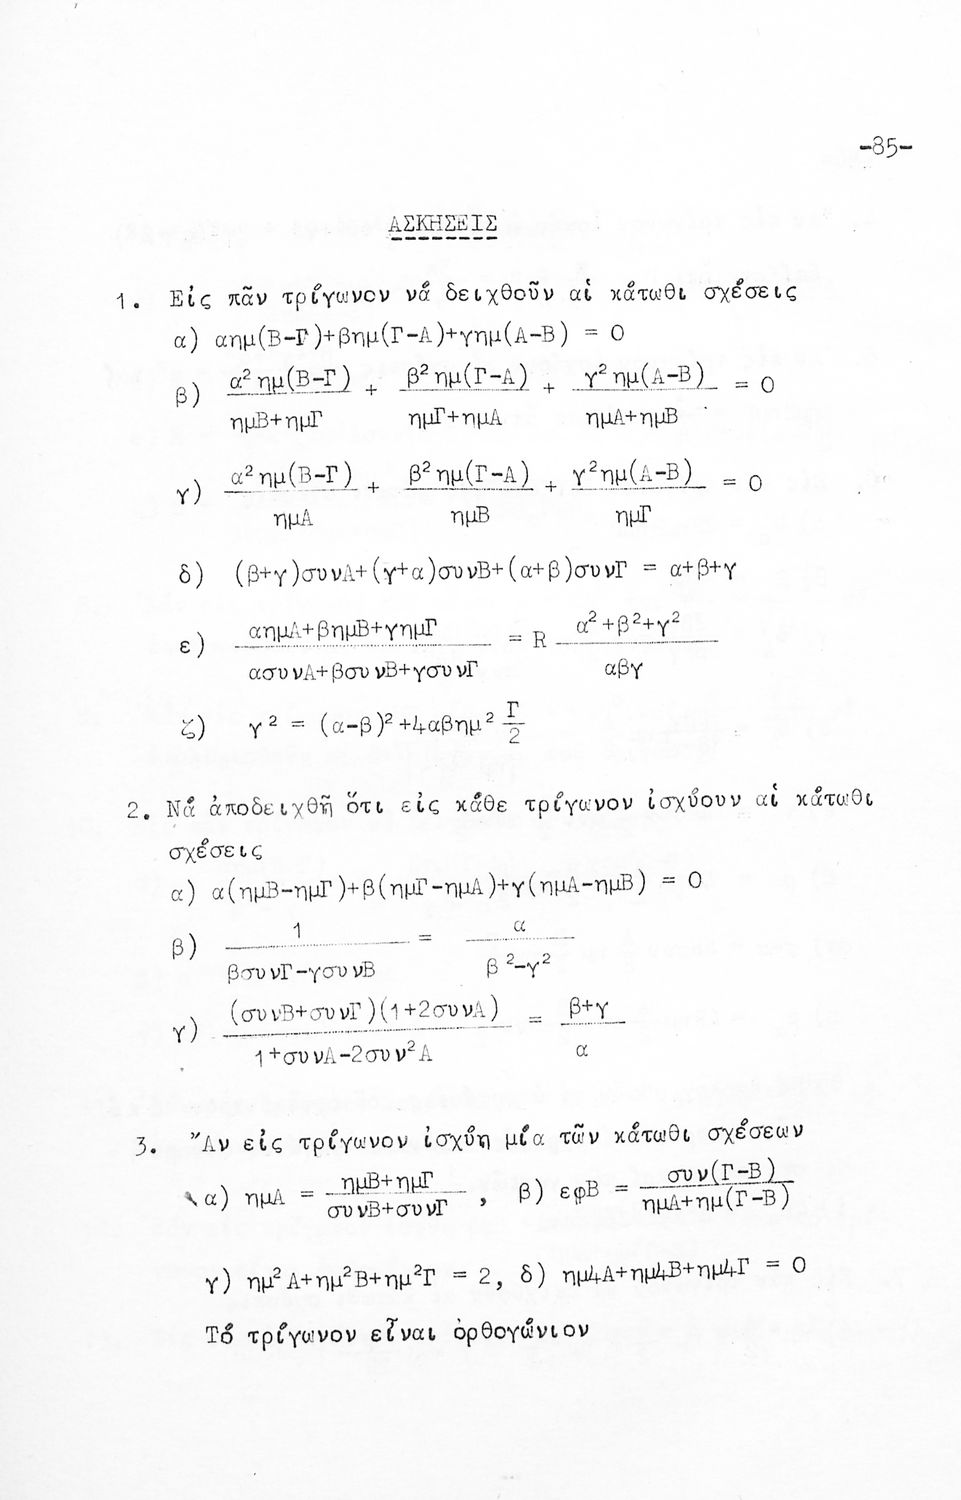 -85-
ΑΣΚΗΣΕΙΣ
1. Εἰς πᾶν τρίγωνον νά δειχθοῦν αἱ κάτωθι σχέσεις
α) αημ(Β-Γ)+βημ(Γ-Α)+γημ(Α-Β) = 0
β) α²ημ(Β-Γ)/ημΒ+ημΓ + β²ημ(Γ-Α)/ημΓ+ημΑ + γ²ημ(Α-Β)/ημΑ+ημΒ = 0
γ) α²ημ(Β-Γ)/ημΑ + β²ημ(Γ-Α)/ημΒ + γ²ημ(Α-Β)/ημΓ = 0
δ) (β+γ)συνΑ+(γ+α)συνΒ+(α+β)συνΓ = α+β+γ
ε) αημΑ+βημΒ+γημΓ/ασυνΑ+βσυνΒ+γσυνΓ = R α²+β²+γ²/αβγ
ζ) γ² = (α-β)²+4αβημ² Γ/2
2. Νά ἀποδειχθῆ ὅτι εἰς κάθε τρίγωνον ἰσχύουν αἱ κάτωθι
σχέσεις
α) α(ημΒ-ημΓ)+β(ημΓ-ημΑ)+γ(ημΑ-ημΒ) = 0
β) 1/βσυνΓ-γσυνΒ = α/β²-γ²
γ) (συνΒ+συνΓ)(1+2συνΑ)/1+συνΑ-2συν²Α = β+γ/α
3. Ἄν εἰς τρίγωνον ἰσχύῃ μία τῶν κάτωθι σχέσεων
α) ημΑ = ημΒ+ημΓ/συνΒ+συνΓ , β) εφΒ = συν(Γ-Β)/ημΑ+ημ(Γ-Β)
γ) ημ²Α+ημ²Β+ημ²Γ = 2, δ) ημ4Α+ημ4Β+ημ4Γ = 0
Τό τρίγωνον εἶναι ὀρθογώνιον